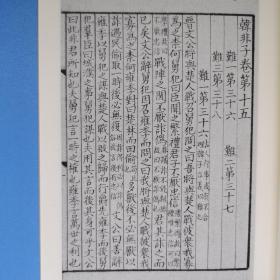 韓非子卷第十五
難一第三十六　難二第三十七
難三第三十八
難一第三十六
晉文公將與楚人戰召舅犯問之曰吾將與楚人戰彼衆我寡
爲之柰何舅犯曰臣聞之繁禮君子不厭忠信
戰陣之閒不厭詐僞君其詐之而
已矣文公辭舅犯因召雍季而問之曰我將與楚人戰彼衆我
寡爲之柰何雍季對曰焚林而田偷取多獸後必無獸以
詐遇民偷取一時後必無復文公曰善辭
雍季以舅犯之謀與楚人戰以敗之歸而行爵先雍季而後舅
犯羣臣曰城濮之事舅犯謀也夫用其言而後其身可乎文公
曰此非君所知也夫舅犯言一時之權也雍季言萬世之利也